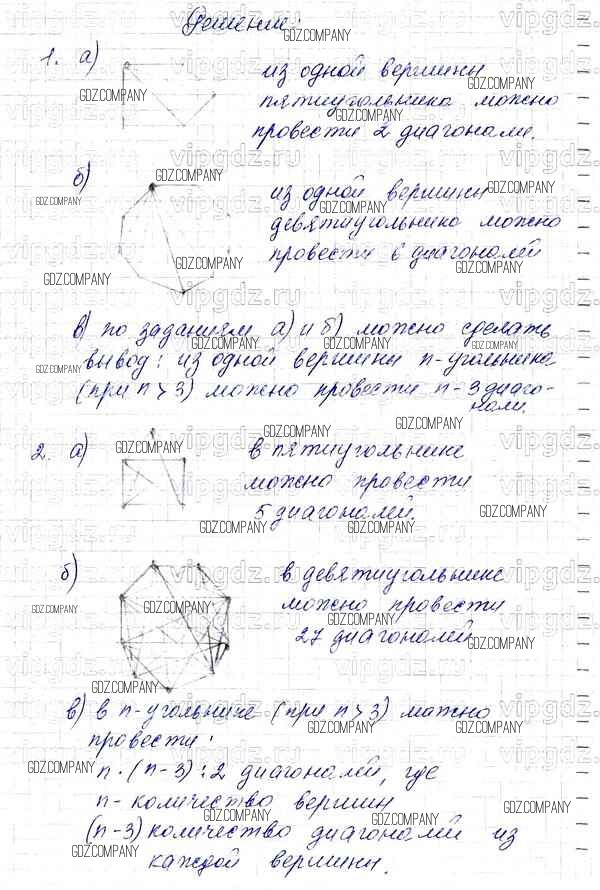 Решение:
1. а) из одной вершины
пятиугольника можно
провести 2 диагонали.
б) из одной вершины
девятиугольника можно
провести 6 диагоналей
в) по заданиям а) и б) можно сделать
вывод: из одной вершины n-угольника
(при n > 3) можно провести n-3 диаго-
нали.
2. а) в пятиугольнике
можно провести
5 диагоналей.
б) в девятиугольнике
можно провести
27 диагоналей
в) в n-угольнике (при n > 3) можно
провести:
n·(n-3):2 диагоналей, где
n- количество вершин
(n-3) количество диагоналей из
каждой вершины.